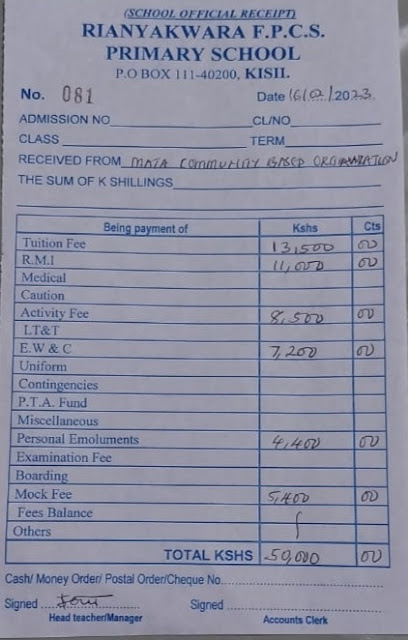 (SCHOOL OFFICIAL RECEIPT)
RIANYAKWARA F.P.C.S.
PRIMARY SCHOOL
P.O BOX 111-40200, KISII.
No. 081 Date 16/02/2023
ADMISSION NO CL/NO
CLASS TERM
RECEIVED FROM MATA COMMUNITY BASED ORGANIZATION
THE SUM OF K SHILLINGS
Being payment of Kshs Cts
Tuition Fee 13,500 00
R.M.I 11,000 00
Medical
Caution
Activity Fee 8,500 00
LT&T
E.W & C 7,200 00
Uniform
Contingencies
P.T.A. Fund
Miscellaneous
Personal Emoluments 4,400 00
Examination Fee
Boarding
Mock Fee 5,400 00
Fees Balance
Others
TOTAL KSHS 50,000 00
Cash/ Money Order/ Postal Order/Cheque No.
Signed Signed
Head teacher/Manager Accounts Clerk